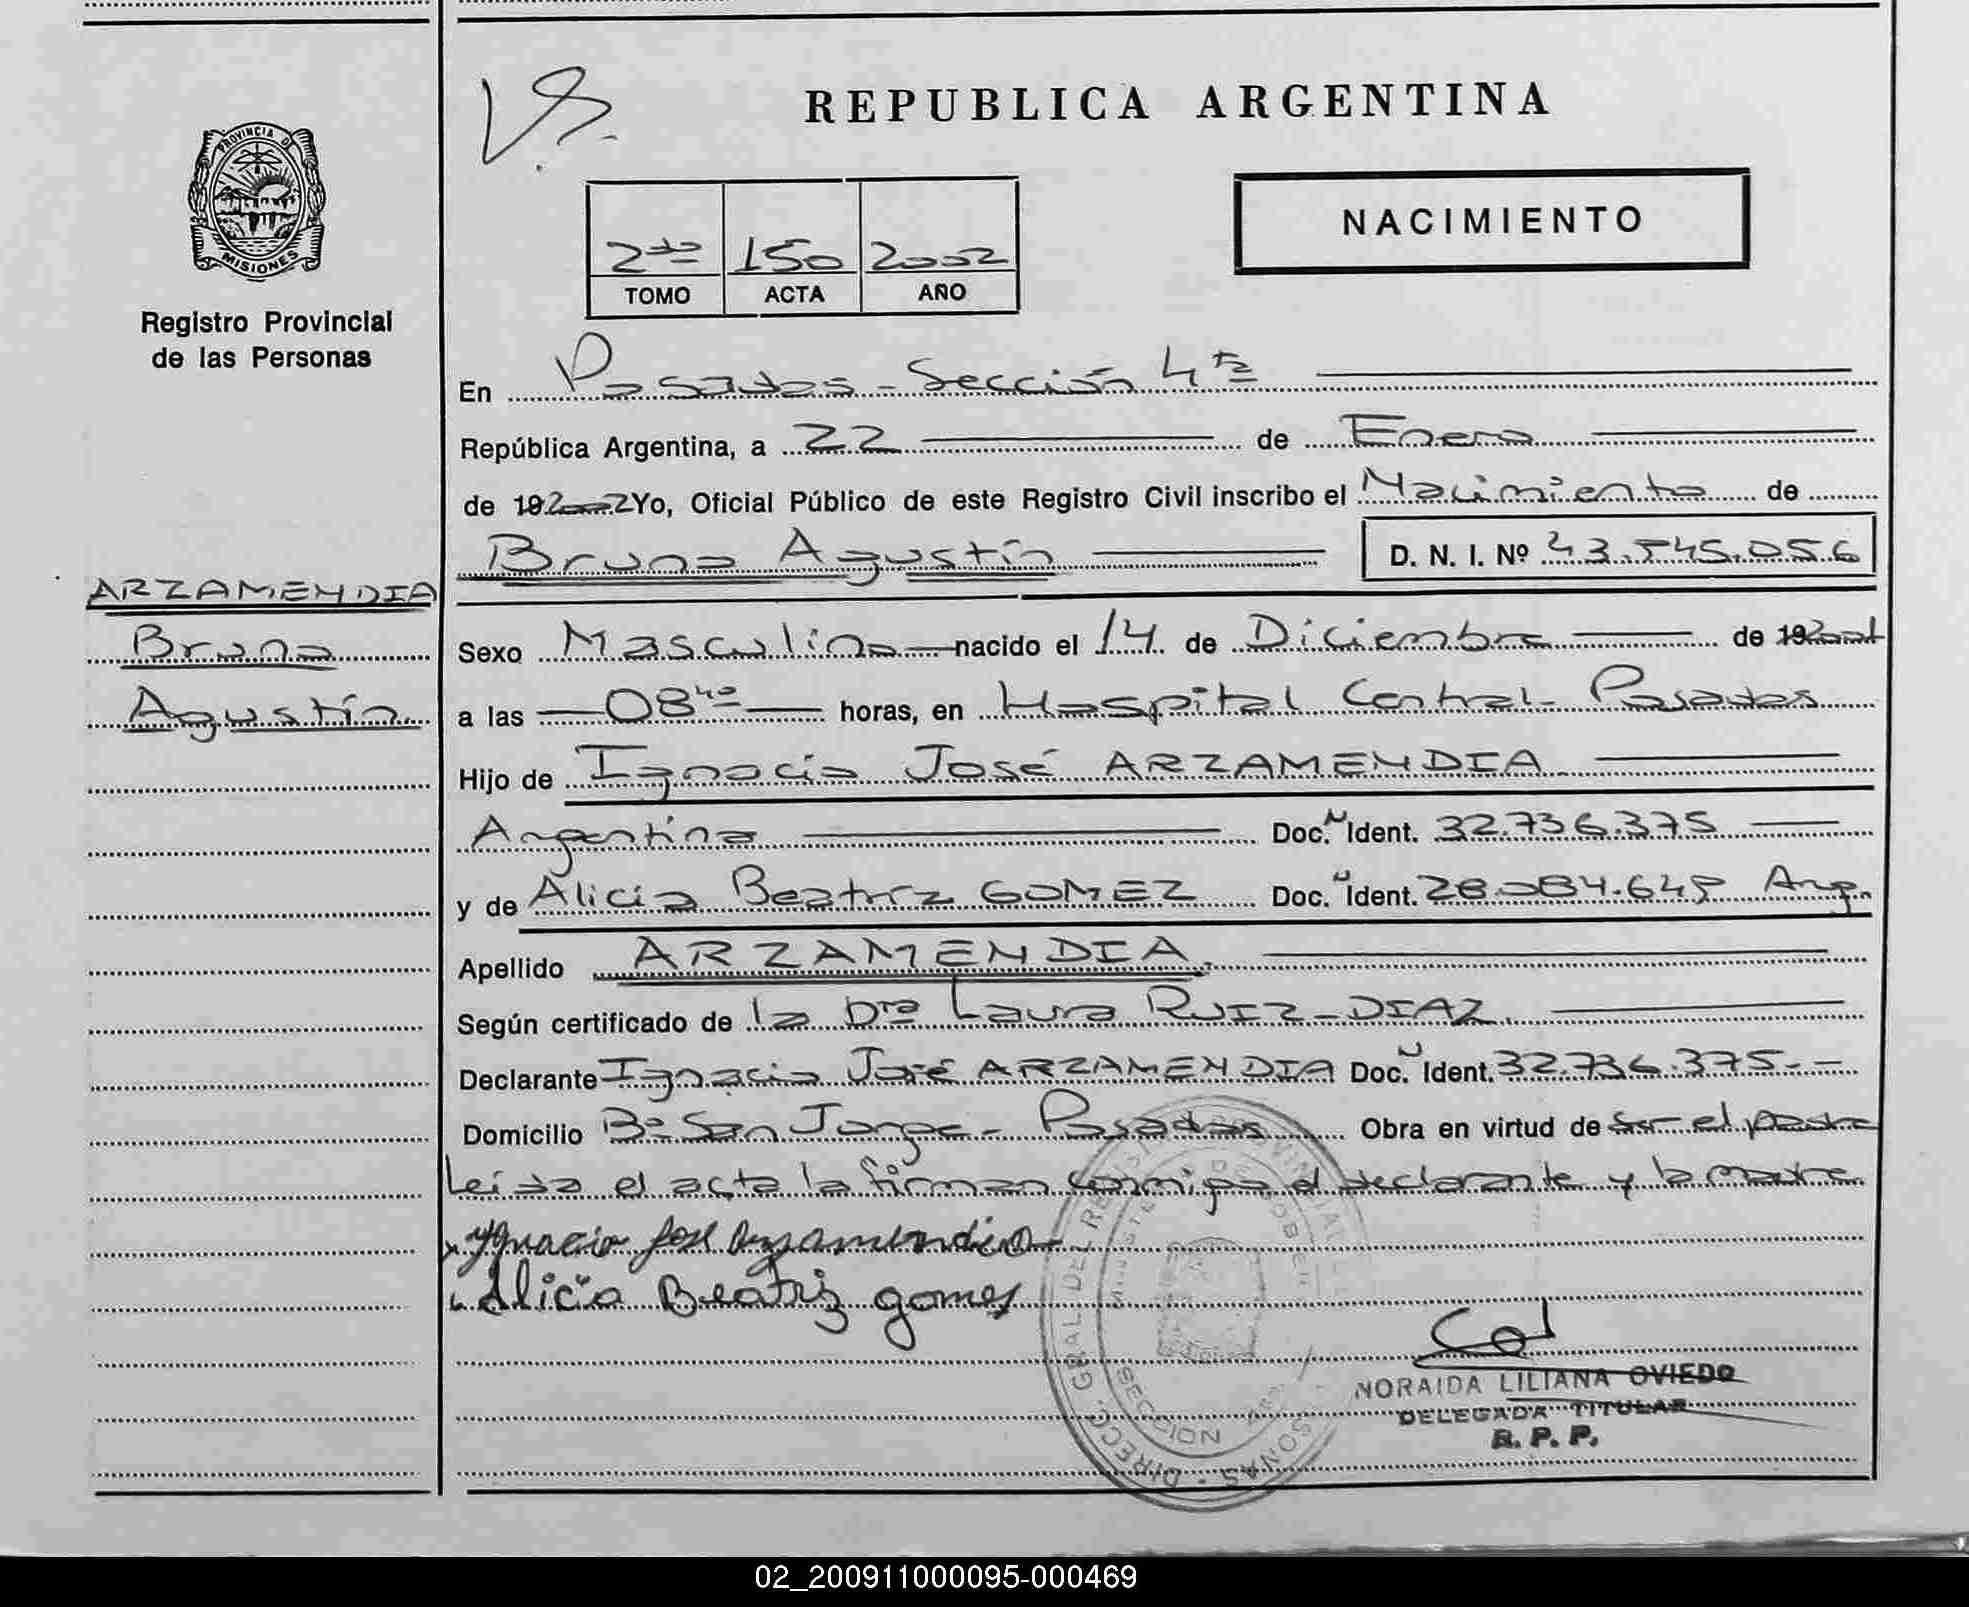 REPUBLICA ARGENTINA
PROVINCIA DE
MISIONES
Registro Provincial
de las Personas
NACIMIENTO
2do 150 2002
TOMO ACTA AÑO
En Posadas - Sección 4ta
República Argentina, a 22 de Enero
de 192002 Yo, Oficial Público de este Registro Civil inscribo el Nacimiento de
Bruno Agustín D. N. I. Nº 43.545.056
ARZAMENDIA
Bruno
Agustín
Sexo Masculino nacido el 14 de Diciembre de 192001
a las 08 40 horas, en Hospital Central - Posadas
Hijo de Ignacio José ARZAMENDIA
Argentino Doc. N Ident. 32.736.375
y de Alicia Beatríz GOMEZ Doc. N Ident. 28.084.649 Arg.
Apellido ARZAMENDIA.
Según certificado de la Dra Laura RUIZ-DIAZ
Declarante Ignacio José ARZAMENDIA Doc. N Ident. 32.736.375.-
Domicilio Bº San Jorge - Posadas Obra en virtud de ser el padre
Leída el acta la firman conmigo el declarante y la madre
Ygnacio Jose Arzamendia
Alicia Beatriz gomes
DIRECC. GRAL DEL REGISTRO PROVINCIAL
SECCION
NORAIDA LILIANA OVIEDO
DELEGADA TITULAR
R. P. P.
02_200911000095-000469